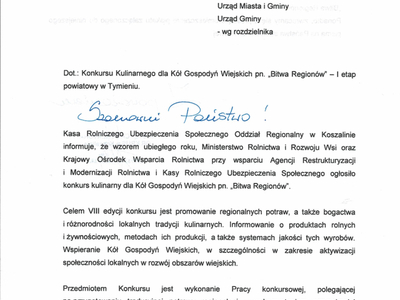 Urząd Miasta i Gminy
Urząd Gminy
- wg rozdzielnika
Dot.: Konkursu Kulinarnego dla Kół Gospodyń Wiejskich pn. „Bitwa Regionów” – I etap
powiatowy w Tymieniu.
Szanowni Państwo!
Kasa Rolniczego Ubezpieczenia Społecznego Oddział Regionalny w Koszalinie
informuje, że wzorem ubiegłego roku, Ministerstwo Rolnictwa i Rozwoju Wsi oraz
Krajowy Ośrodek Wsparcia Rolnictwa przy wsparciu Agencji Restrukturyzacji
i Modernizacji Rolnictwa i Kasy Rolniczego Ubezpieczenia Społecznego ogłosiło
konkurs kulinarny dla Kół Gospodyń Wiejskich pn. „Bitwa Regionów”.
Celem VIII edycji konkursu jest promowanie regionalnych potraw, a także bogactwa
i różnorodności lokalnych tradycji kulinarnych. Informowanie o produktach rolnych
i żywnościowych, metodach ich produkcji, a także systemach jakości tych wyrobów.
Wspieranie Kół Gospodyń Wiejskich, w szczególności w zakresie aktywizacji
społeczności lokalnych w rozwój obszarów wiejskich.
Przedmiotem Konkursu jest wykonanie Pracy konkursowej, polegającej